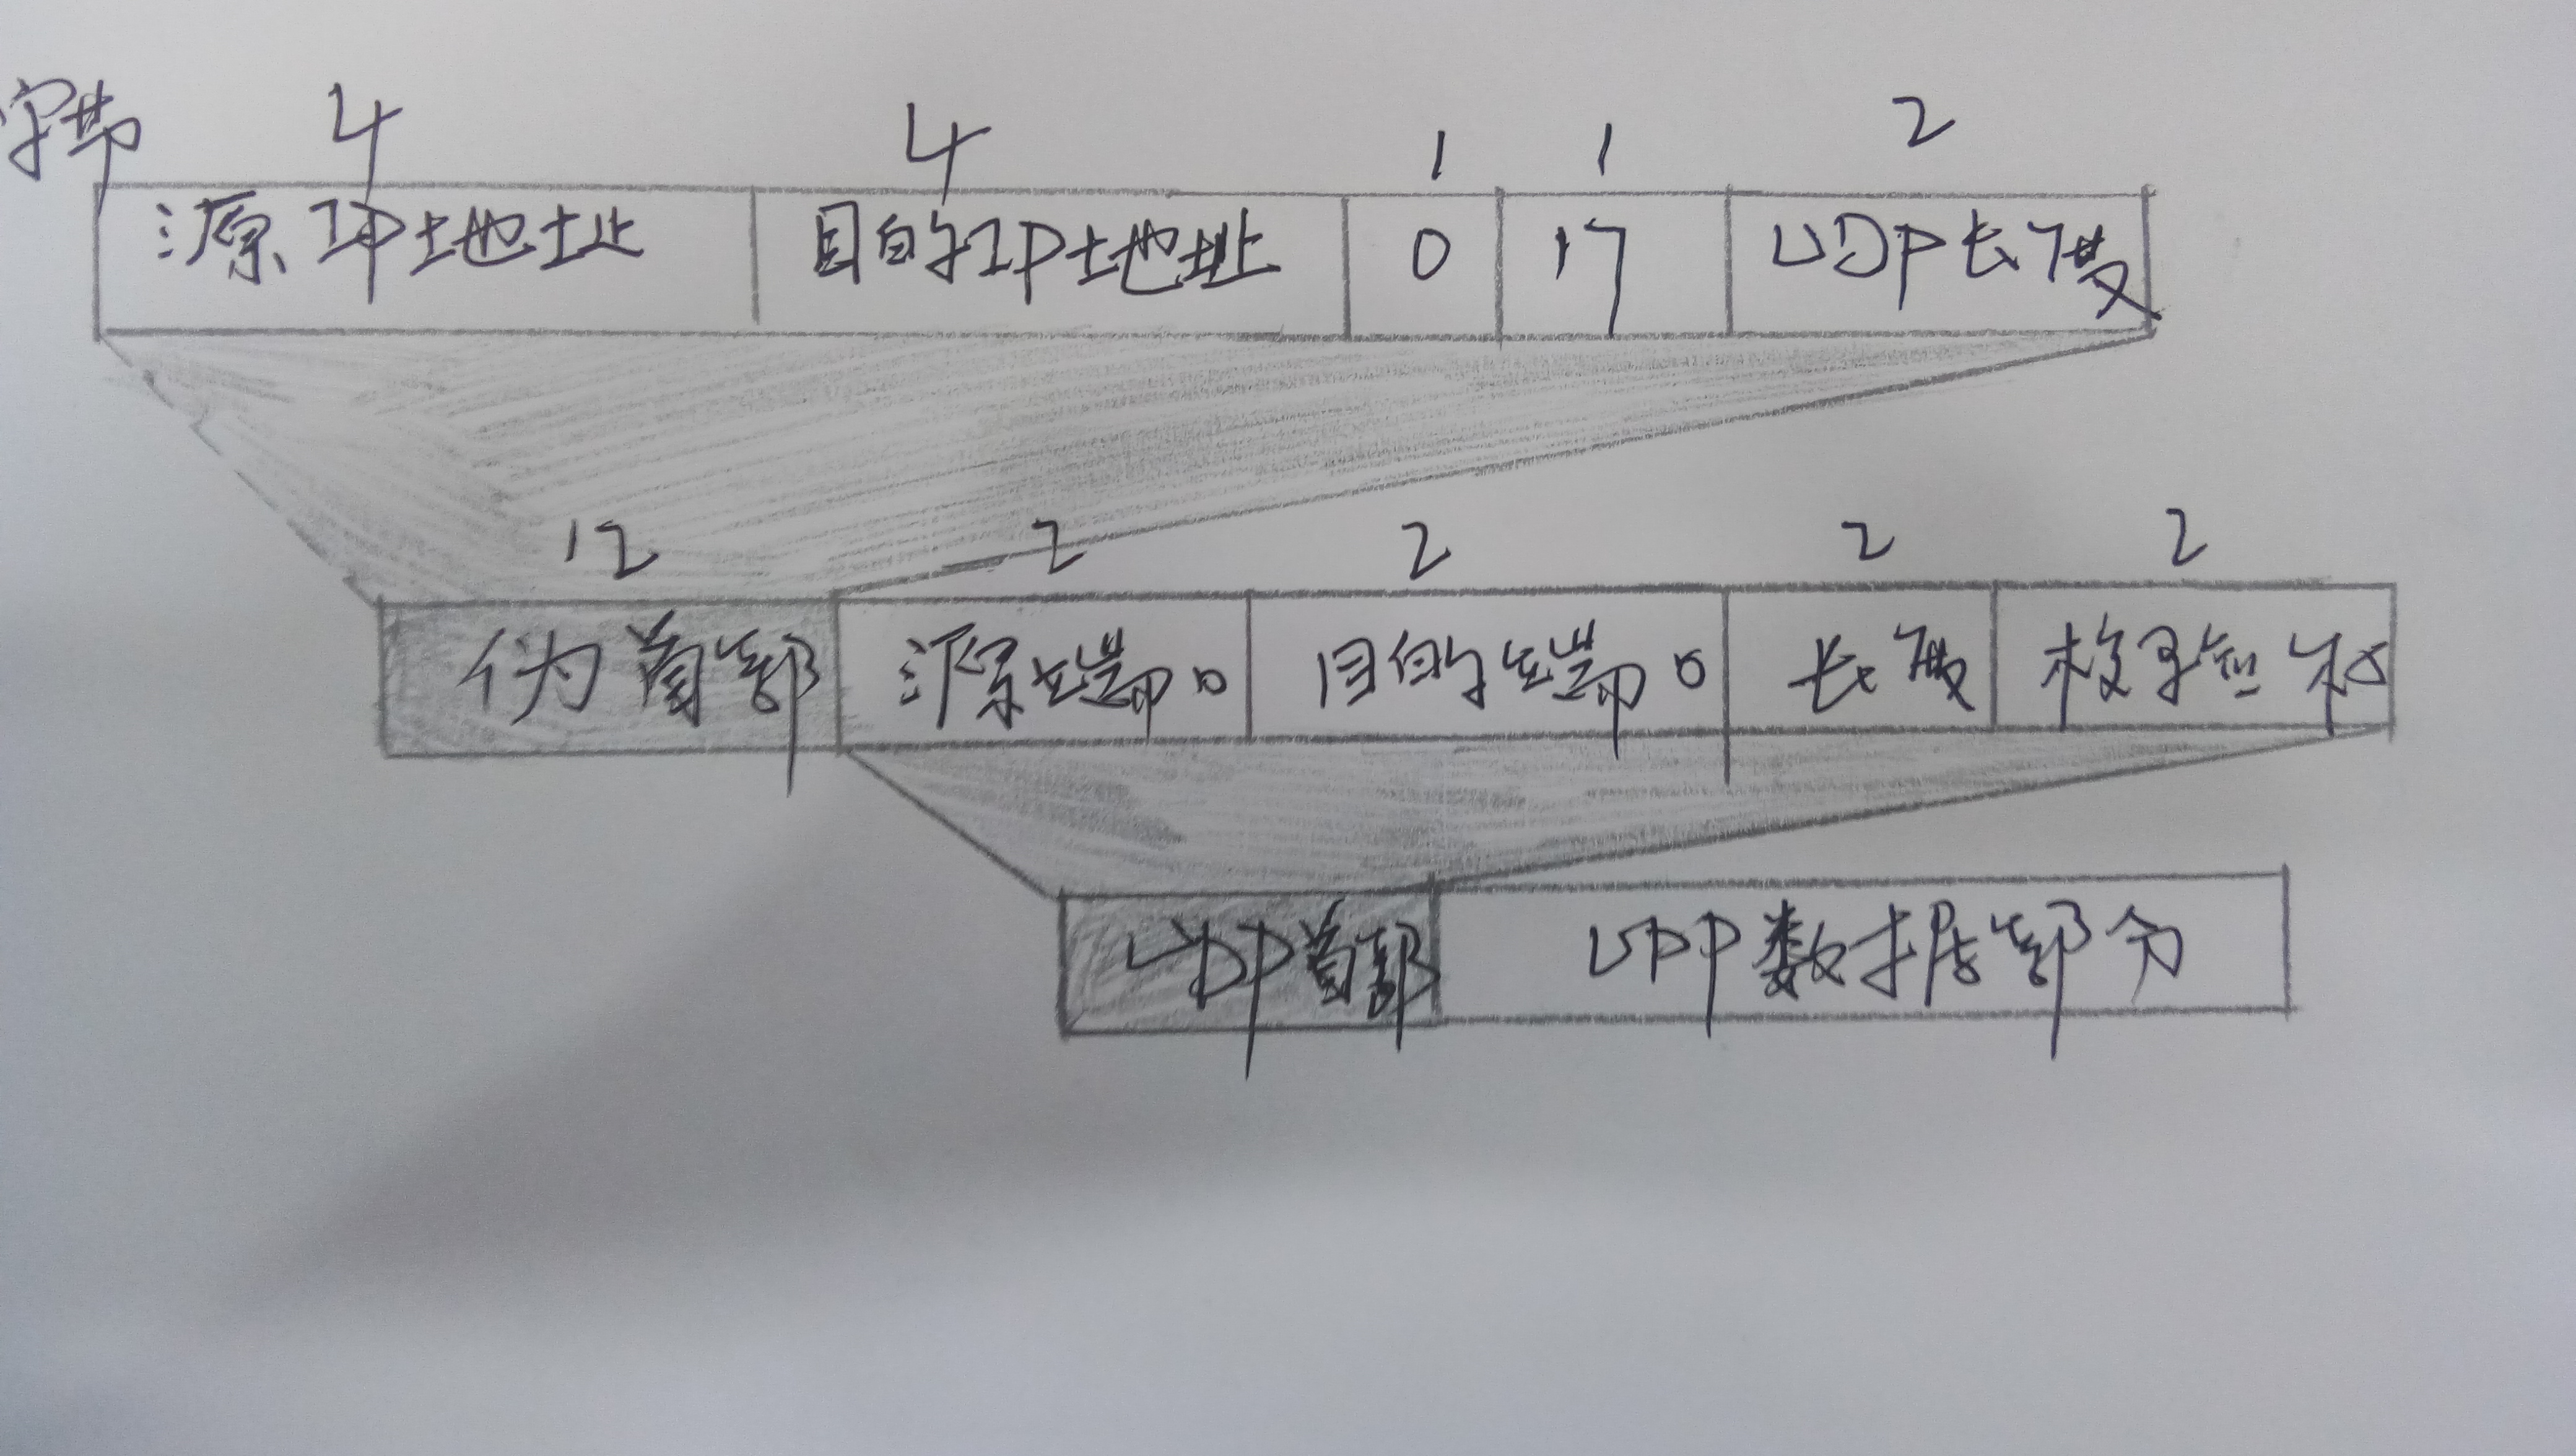 字节 4 4 1 1 2
源IP地址 目的IP地址 0 17 UDP长度
12 2 2 2 2
伪首部 源端口 目的端口 长度 校验和
UDP首部 UDP数据部分